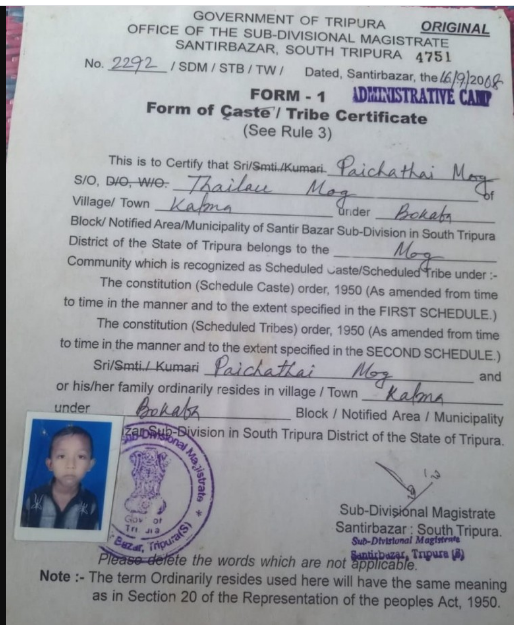 GOVERNMENT OF TRIPURA
ORIGINAL
OFFICE OF THE SUB-DIVISIONAL MAGISTRATE
SANTIRBAZAR, SOUTH TRIPURA 4751
No. 2292 / SDM / STB / TW / Dated, Santirbazar, the 16/9/2008
FORM - 1 ADMINISTRATIVE CAMP
Form of Caste / Tribe Certificate
(See Rule 3)
This is to Certify that Sri/Smti./Kumari. Paichathai Mog
S/O, D/O, W/O. Thailau Mog of
Village/ Town Kalma under Bokafa
Block/ Notified Area/Municipality of Santir Bazar Sub-Division in South Tripura
District of the State of Tripura belongs to the Mog
Community which is recognized as Scheduled Caste/Scheduled Tribe under :-
The constitution (Schedule Caste) order, 1950 (As amended from time
to time in the manner and to the extent specified in the FIRST SCHEDULE.)
The constitution (Scheduled Tribes) order, 1950 (As amended from time
to time in the manner and to the extent specified in the SECOND SCHEDULE.)
Sri/Smti./ Kumari Paichathai Mog and
or his/her family ordinarily resides in village / Town Kalma
under Bokafa Block / Notified Area / Municipality
zar Sub-Division in South Tripura District of the State of Tripura.
Sub-Divisional Magistrate
Gov of
Tri ura
Bazar, Tripura(S)
Sub-Divisional Magistrate
Santirbazar : South Tripura.
Sub-Divisional Magistrate
Santirbazar, Tripura (S)
Please delete the words which are not applicable.
Note :- The term Ordinarily resides used here will have the same meaning
as in Section 20 of the Representation of the peoples Act, 1950.